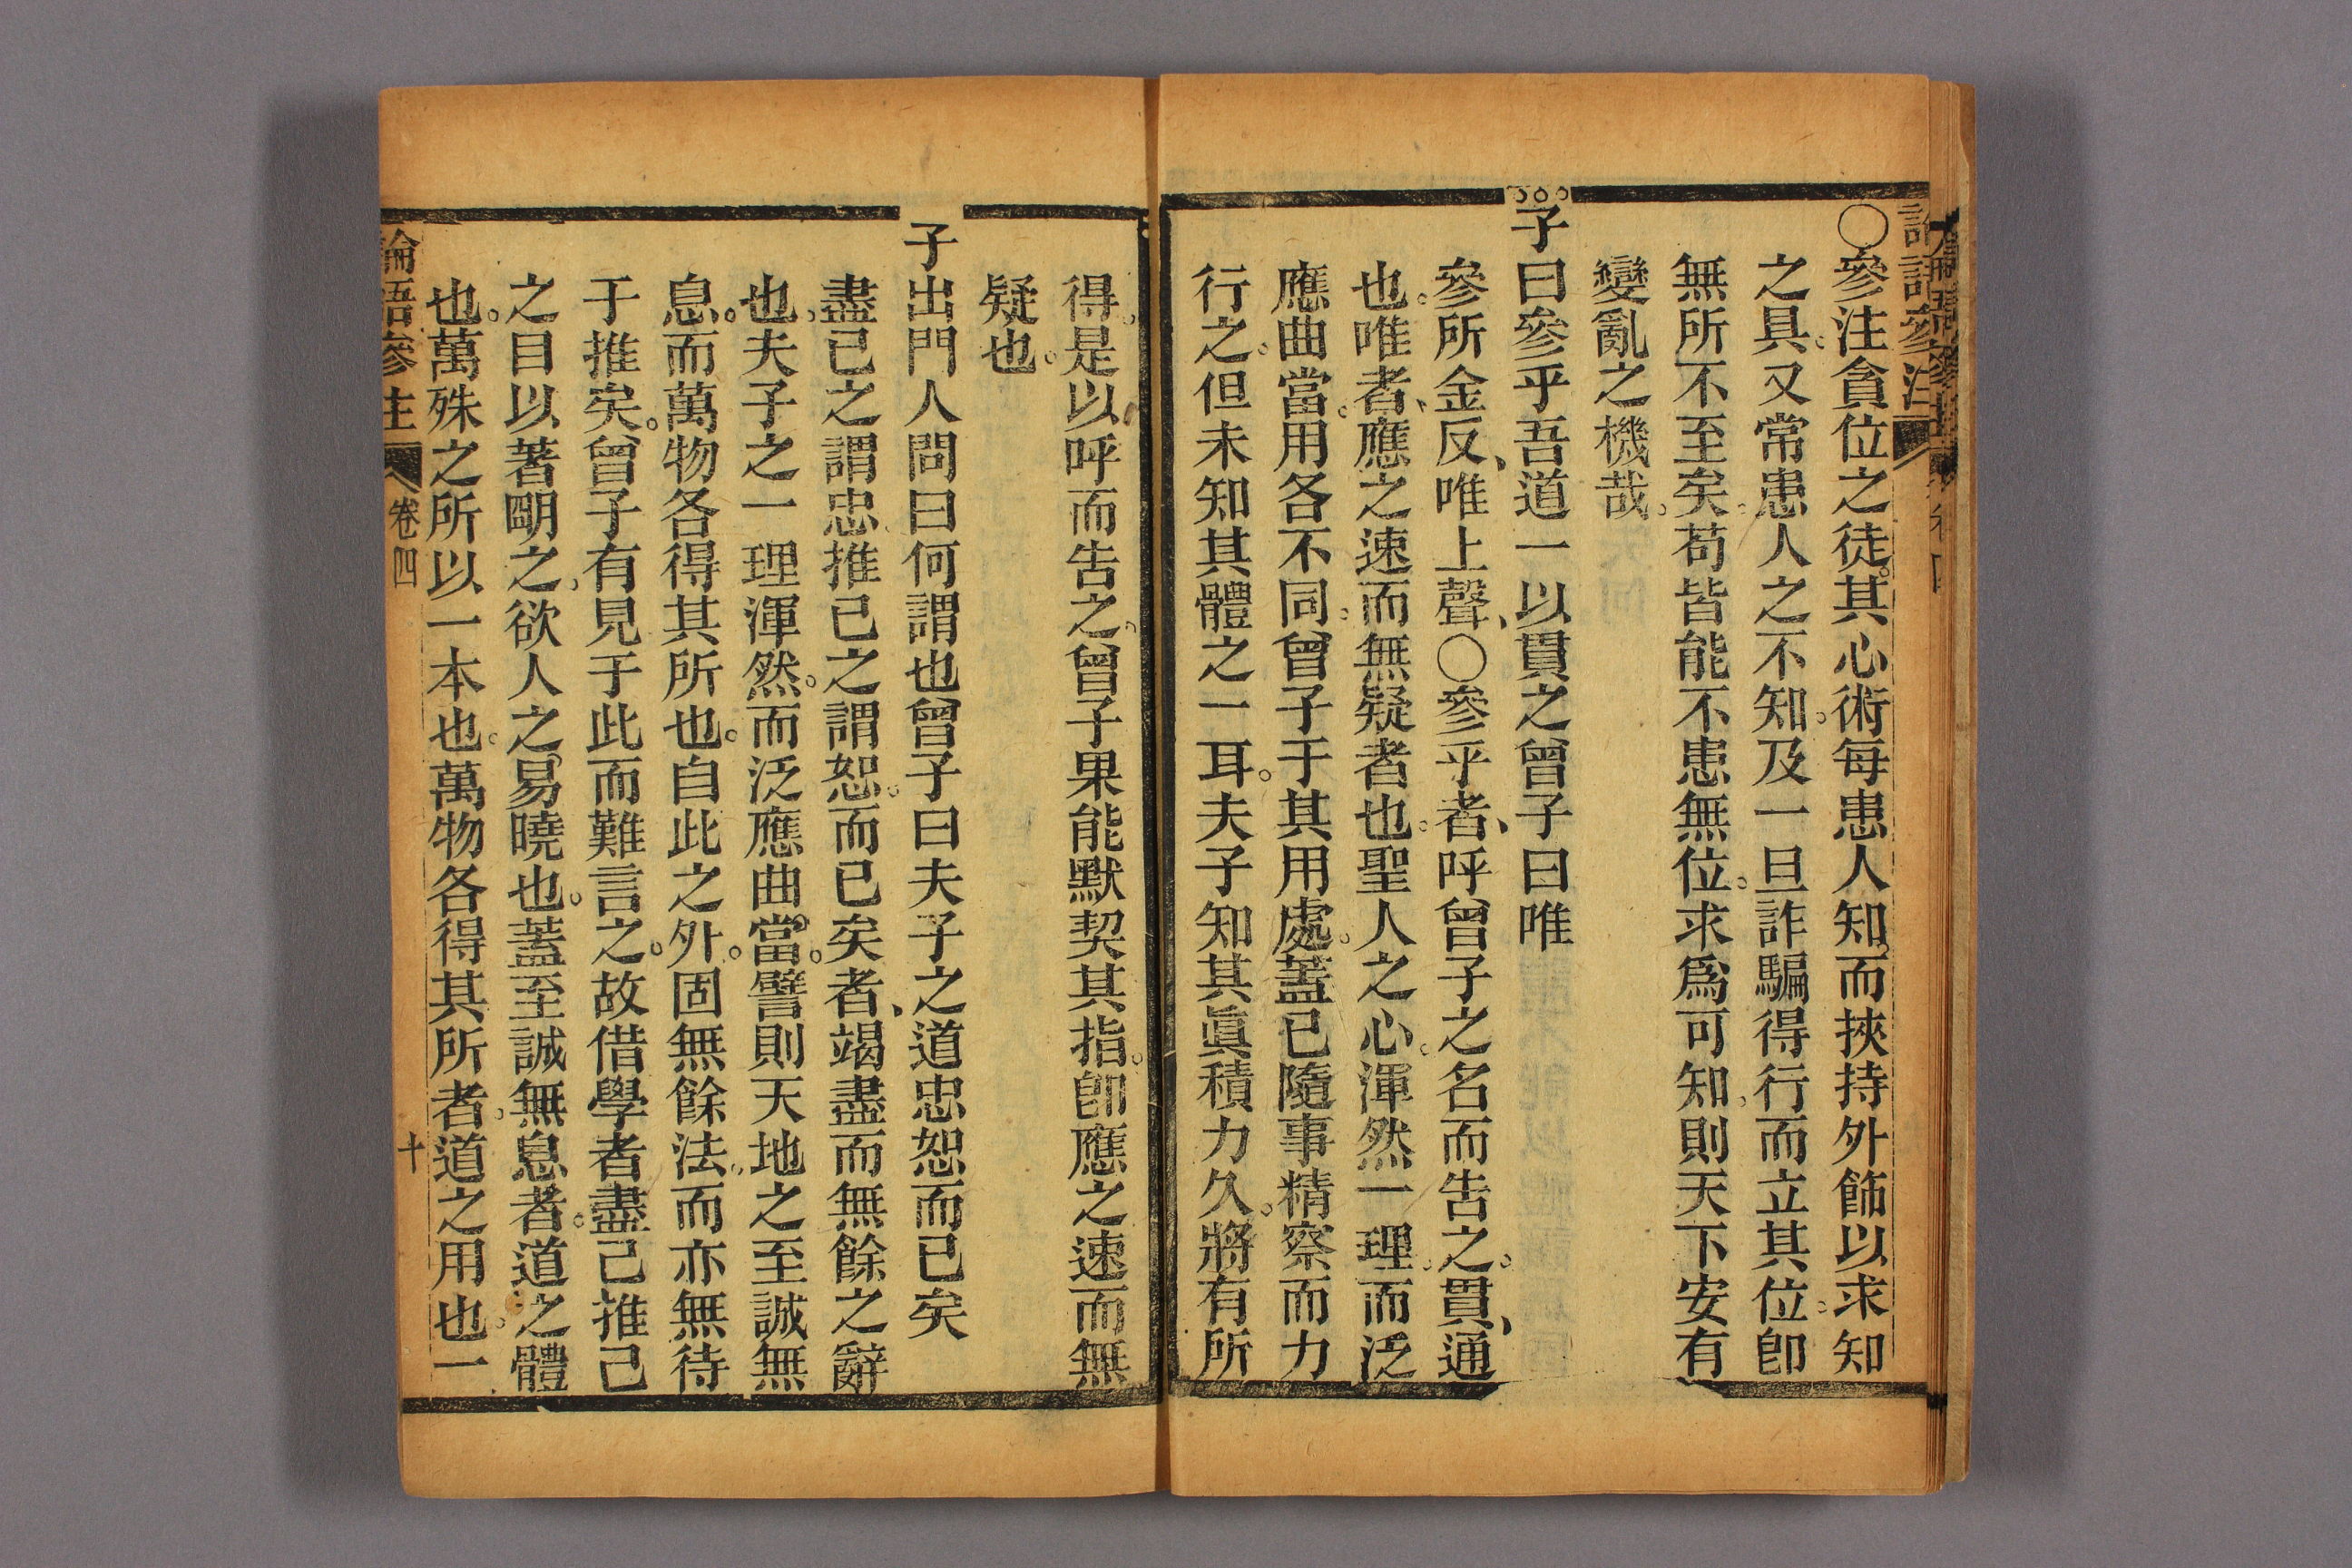 論語參注
○參注貪位之徒。其心術每患人知。而挾持外飾以求知
之具。又常患人之不知。及一旦詐騙得行而立其位。卽
無所不至矣。苟皆能不患無位。求爲可知。則天下安有
變亂之機哉。
子曰參乎吾道一以貫之曾子曰唯
參所金反、唯上聲、○參乎者、呼曾子之名而告之。貫、通
也。唯者、應之速而無疑者也。聖人之心。渾然一理。而泛
應曲當。用各不同。曾子于其用處。蓋已隨事精察而力
行之。但未知其體之一耳。夫子知其眞積力久。將有所
得。是以呼而告之。曾子果能默契其指。卽應之速而無
疑也。
子出門人問曰何謂也曾子曰夫子之道忠恕而已矣
盡己之謂忠。推己之謂恕。而已矣者、竭盡而無餘之辭
也。夫子之一理渾然。而泛應曲當。譬則天地之至誠無
息。而萬物各得其所也。自此之外。固無餘法。而亦無待
于推矣。曾子有見于此而難言之。故借學者盡己推己
之目以著朙之、欲人之易曉也。蓋至誠無息者。道之體
也。萬殊之所以一本也。萬物各得其所者。道之用也。一
論語參注
卷四
十